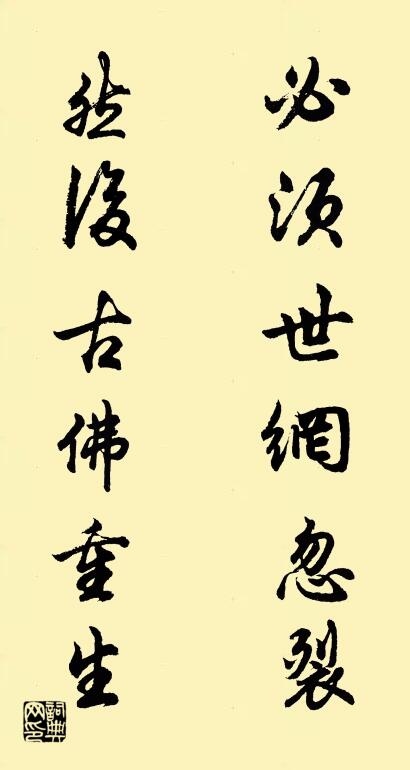 必須世網忽裂
然後古佛重生
詞典網印